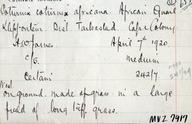 Coturnix coturnix africana African Quail
Kliffontein Dist. Tarkastad. Cape Colony
A. W. James April 7th 1920
c/6 medium
Certain 242/7
Nest
on ground, made of grass in a large
field of long tuff grass.
MVZ 7497